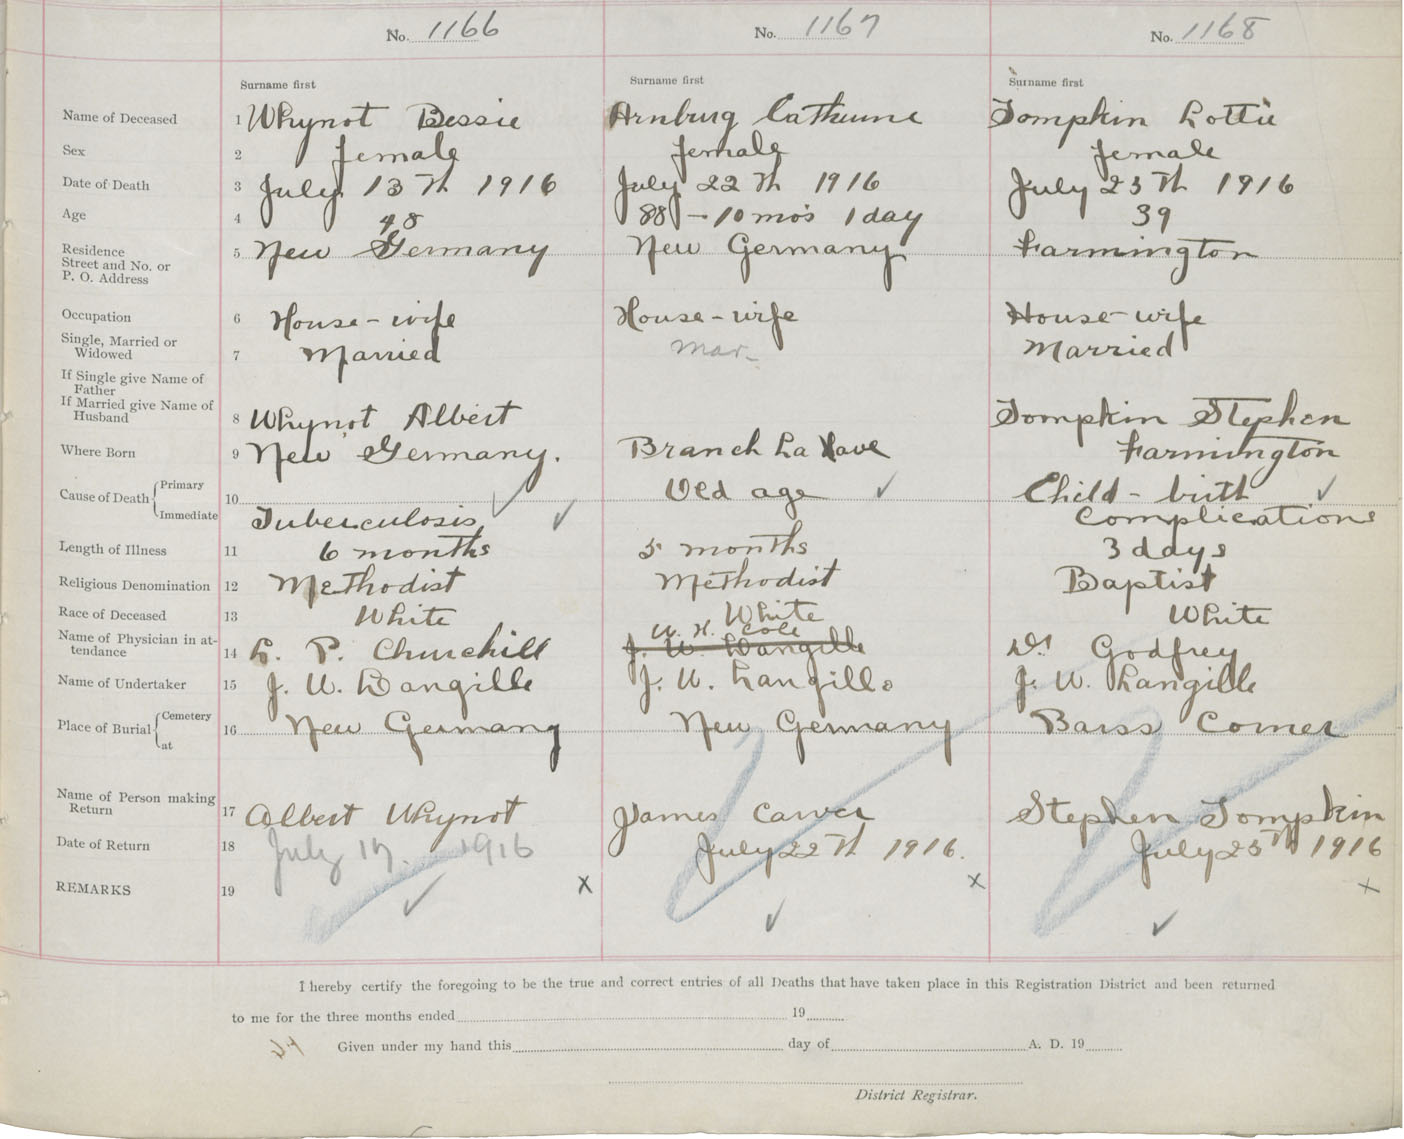 No. 1166 No. 1167 No. 1168
Surname first Surname first Surname first
Name of Deceased 1 Whynot Bessie Arnburg Catherine Tompkin Lottie
Sex 2 female female female
Date of Death 3 July 13th 1916 July 22th 1916 July 25th 1916
Age 4 48 88 - 10 mo's 1 day 39
Residence
Street and No. or
P. O. Address 5 New Germany New Germany Farmington
Occupation 6 House-wife House-wife House-wife
Single, Married or
Widowed 7 Married Mar. Married
If Single give Name of
Father
If Married give Name of
Husband 8 Whynot Albert Tompkin Stephen
Where Born 9 New Germany. Branch La Have Farmington
Cause of Death { Primary 10 Old age Child-birth
Immediate Tuberculosis Complications
Length of Illness 11 6 months 5 months 3 days
Religious Denomination 12 Methodist Methodist Baptist
Race of Deceased 13 White White White
W. H. Cole
Name of Physician in at-
tendance 14 L. P. Churchill J. W. Langille Dr. Godfrey
Name of Undertaker 15 J. W. Langille J. W. Langille J. W. Langille
Place of Burial { Cemetery
at 16 New Germany New Germany Barss Corner
Name of Person making
Return 17 Albert Whynot James Carver Stephen Tompkin
Date of Return 18 July 17. 1916 July 22th 1916. July 25th 1916
REMARKS 19 x x x
I hereby certify the foregoing to be the true and correct entries of all Deaths that have taken place in this Registration District and been returned
to me for the three months ended 19
Given under my hand this day of A. D. 19
District Registrar.